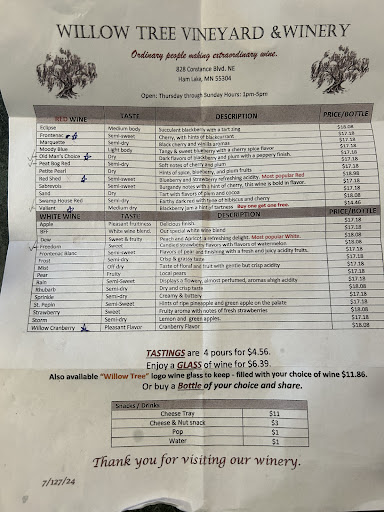 WILLOW TREE VINEYARD & WINERY
Ordinary people making extraordinary wine.
828 Constance Blvd. NE
Ham Lake, MN 55304
Open: Thursday through Sunday Hours: 1pm-5pm
RED WINE TASTE DESCRIPTION PRICE/BOTTLE
Eclipse Medium body Succulent blackberry with a tart zing $18.08
Frontenac Semi-sweet Cherry, with hints of blackcurrant $17.18
Marquette Semi-dry Black cherry and vanilla aromas $17.18
Moody Blue Light body Tangy & sweet blueberry with a cherry spice flavor $17.18
Old Man's Choice Dry Dark flavors of blackberry and plum with a peppery finish. $17.18
Peat Bog Red Semi-dry Soft notes of cherry and plum $17.18
Petite Pearl Dry Hints of spice, blueberry, and plum fruits $17.18
Red Shed Semi-sweet Blueberry and strawberry refreshing acidity. Most popular Red $18.98
Sabrevois Semi-sweet Burgundy notes with a hint of cherry, this wine is bold in flavor. $17.18
Sand Dry Tart with flavors of plum and cocoa $17.18
Swamp House Red Semi-dry Earthy dark red with a tone of hibiscus and cherry $18.08
Valiant Medium dry Blackberry jam a hint of tartness Buy one get one free. $14.46
WHITE WINE TASTE DESCRIPTION PRICE/BOTTLE
Apple Pleasant fruitiness Delicious finish. $17.18
BFF White wine blend Our special white wine blend $17.18
Dew Sweet & fruity Peach and Apricot a refreshing delight. Most popular White. $18.08
Freedom Sweet Candied strawberry flavors with flavors of watermelon $18.08
Frontenac Blanc Semi-sweet Flavors of pear and finishing with a fresh and juicy acidity fruits. $17.18
Frost Semi-dry Crisp & grassy taste $17.18
Mist Off dry Taste of floral and fruit with gentle but crisp acidity $17.18
Pear Fruity Local pears $17.18
Rain Semi-Sweet Displays a flowery, almost perfumed, aromas ahigh acidity $17.18
Rhubarb Semi-dry Dry and crisp taste $18.08
Sprinkle Semi-dry Creamy & buttery $17.18
St. Pepin Semi-Sweet Hints of ripe pineapple and green apple on the palate $17.18
Strawberry Sweet Fruity aroma with notes of fresh strawberries $18.08
Storm Semi-dry Lemon and green apples. $17.18
Willow Cranberry Pleasant Flavor Cranberry Flavor $18.08
TASTINGS are 4 pours for $4.56.
Enjoy a GLASS of wine for $6.39.
Also available "Willow Tree" logo wine glass to keep - filled with your choice of wine $11.86.
Or buy a Bottle of your choice and share.
Snacks / Drinks
Cheese Tray $11
Cheese & Nut snack $3
Pop $1
Water $1
Thank you for visiting our winery.
7/127/24